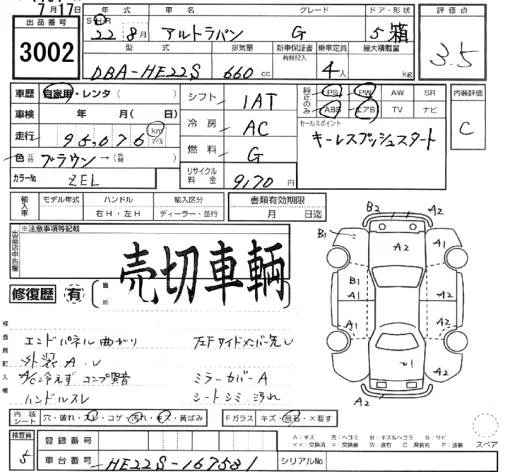 7月17日
出品番号
3002
年式 車名 グレード ドア・形状 評価点
SHR 22年8月 アルトラパン G 5箱 3.5
型式 排気量 新車保証書 有無記入 乗車定員 最大積載量
DBA-HE22S 660cc 4人 kg
車歴 自家用・レンタ( )
車検 年 月( 日)
走行 95,076 km マイル
色 ブラウン→
カラーNo ZEL
シフト 1AT
冷房 AC
燃料 G
リサイクル料金 9,170円
純正のみ PS PW AW SR
ABS エアB TV ナビ
セールスポイント
キーレスプッシュスタート
内装評価
C
輸入車 モデル年式 ハンドル 右H・左H 輸入区分 ディーラー・並行
書類有効期限
月 日迄
※注意事項等記載
売切車輌
修復歴 有 箇所
検査員記入欄
エンドパネル曲がり 左Fサイドメンバー先U
外装A.U
A/C冷えず コンプ異音 ミラーカバーA
ハンドルスレ シートシミ汚れ
B2 A2
B1 A2 A1
B1 A1 A2
A2 A2
A2
A2
内装シート 穴・破れ・スレ・コゲ・汚れ・キズ・黄ばみ
Fガラス キズ・飛石・×要す
スペア
検査員 5
登録番号
車台番号 HE22S-167581
シリアルNo